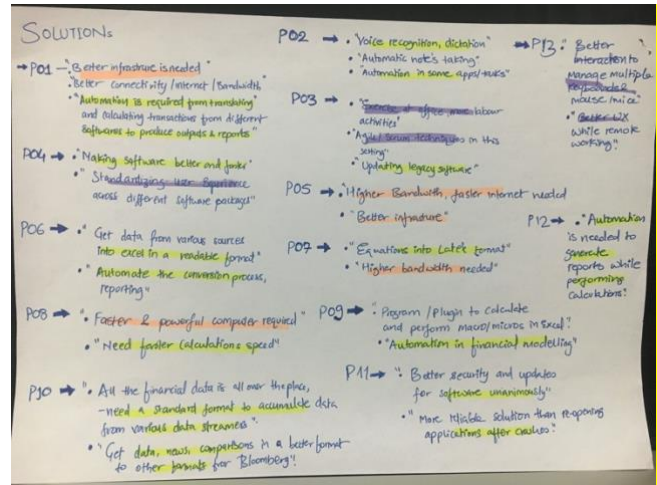 SOLUTIONS
→ P01 — "Better infrastrure is needed"
• Better connectivity/internet/Bandwidth"
• "Automation is required from translating
and calculating transactions from different
Softwares to produce outputs & reports"
P04 → • "Making software better and faster"
• "Standardizing User Experience
across different software packages"
P06 → • "Get data from various sources
into excel in a readable format"
• "Automate the conversion process,
reporting"
P08 → "• Faster & powerful computer required"
• "Need faster calculations speed"
P10 → "• All the financial data is all over the place,
-need a standard format to accumulate data
from various data streamess".
• "Get data, news, comparisons in a better format
to other formats for Bloomberg"!
P02 → • "Voice recognition, dictation"
• "Automatic note's taking"
• "Automation in some apps/tasks"
P03 → • "Exercise at office more labour
activities"
• "Agile/Scrum techniques in this
setting"
• "Updating legacy software"
P05 → • "Higher Bandwith, faster internet needed
• "Better infrastrure"
P07 → • "Equations into Latex format"
• "Higher bandwidth needed"
P09 → • "Program/Plugin to Calculate
and perform macro/micros in Excel".
• "Automation in financial modelling"
P11 → "• Better security and updates
for software unanimously"
• "More reliable solution than re-opening
applications after crashes".
→ P13 • Better
interaction to
Manage multiple
keyboards &
mouse/mice"
• "Better UX
while remote
working".
P12 → • "Automation
is needed to
generate
reports while
performing
calculations".